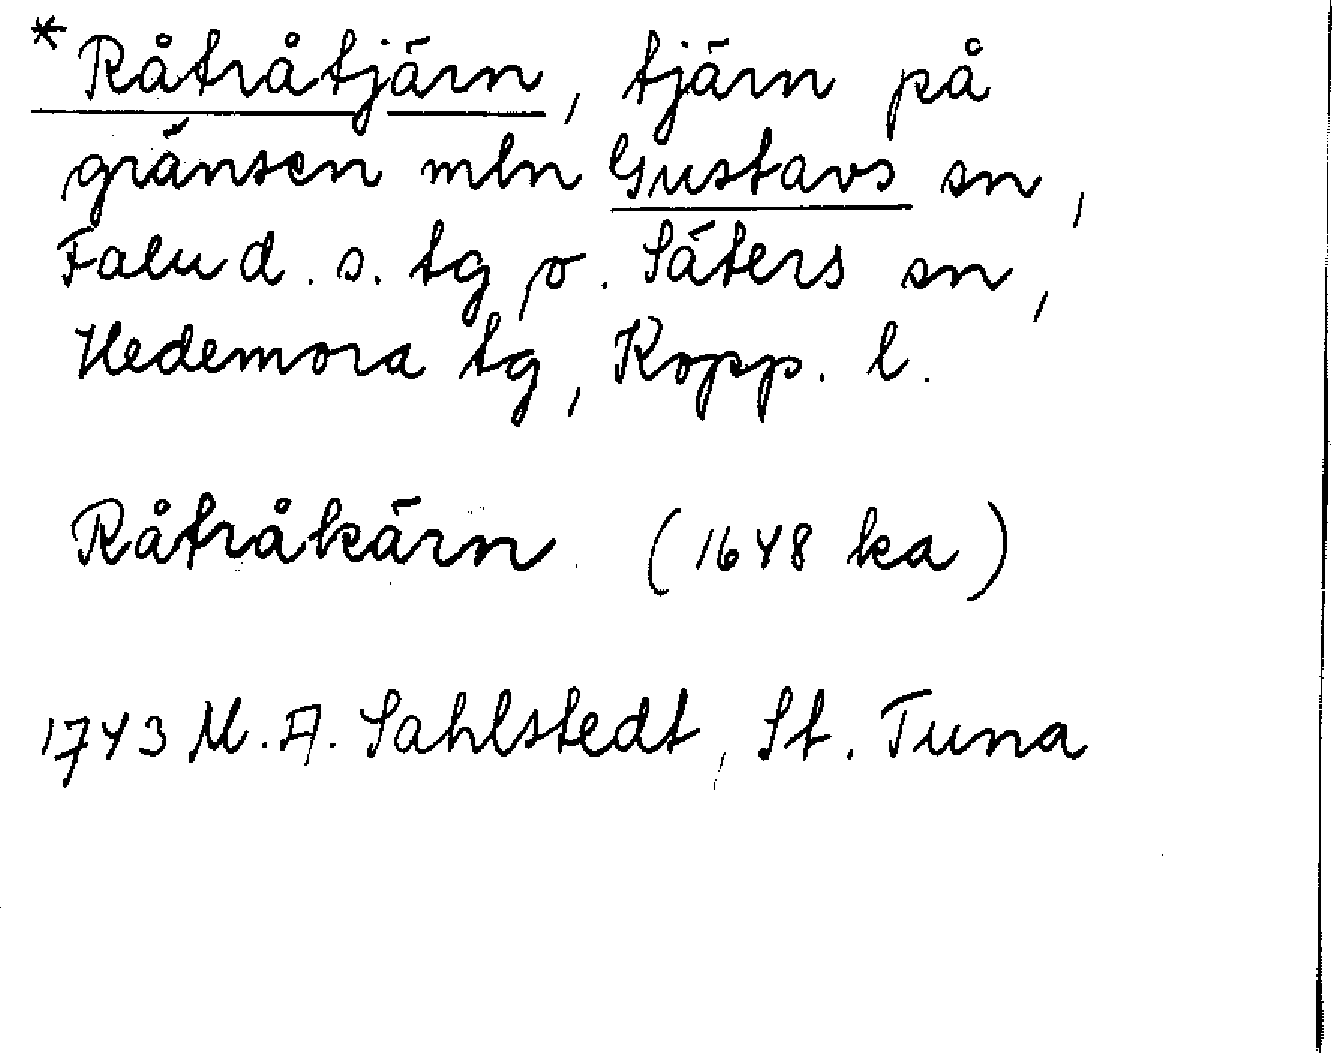 *Råtråtjärn, tjärn på
gränsen mln Gustavs sn,
Falu d. s. tg o. Säters sn,
Hedemora tg, Kopp. l.
Råtråkärn (1648 ka)
1743 M. A. Sahlstedt, St. Tuna